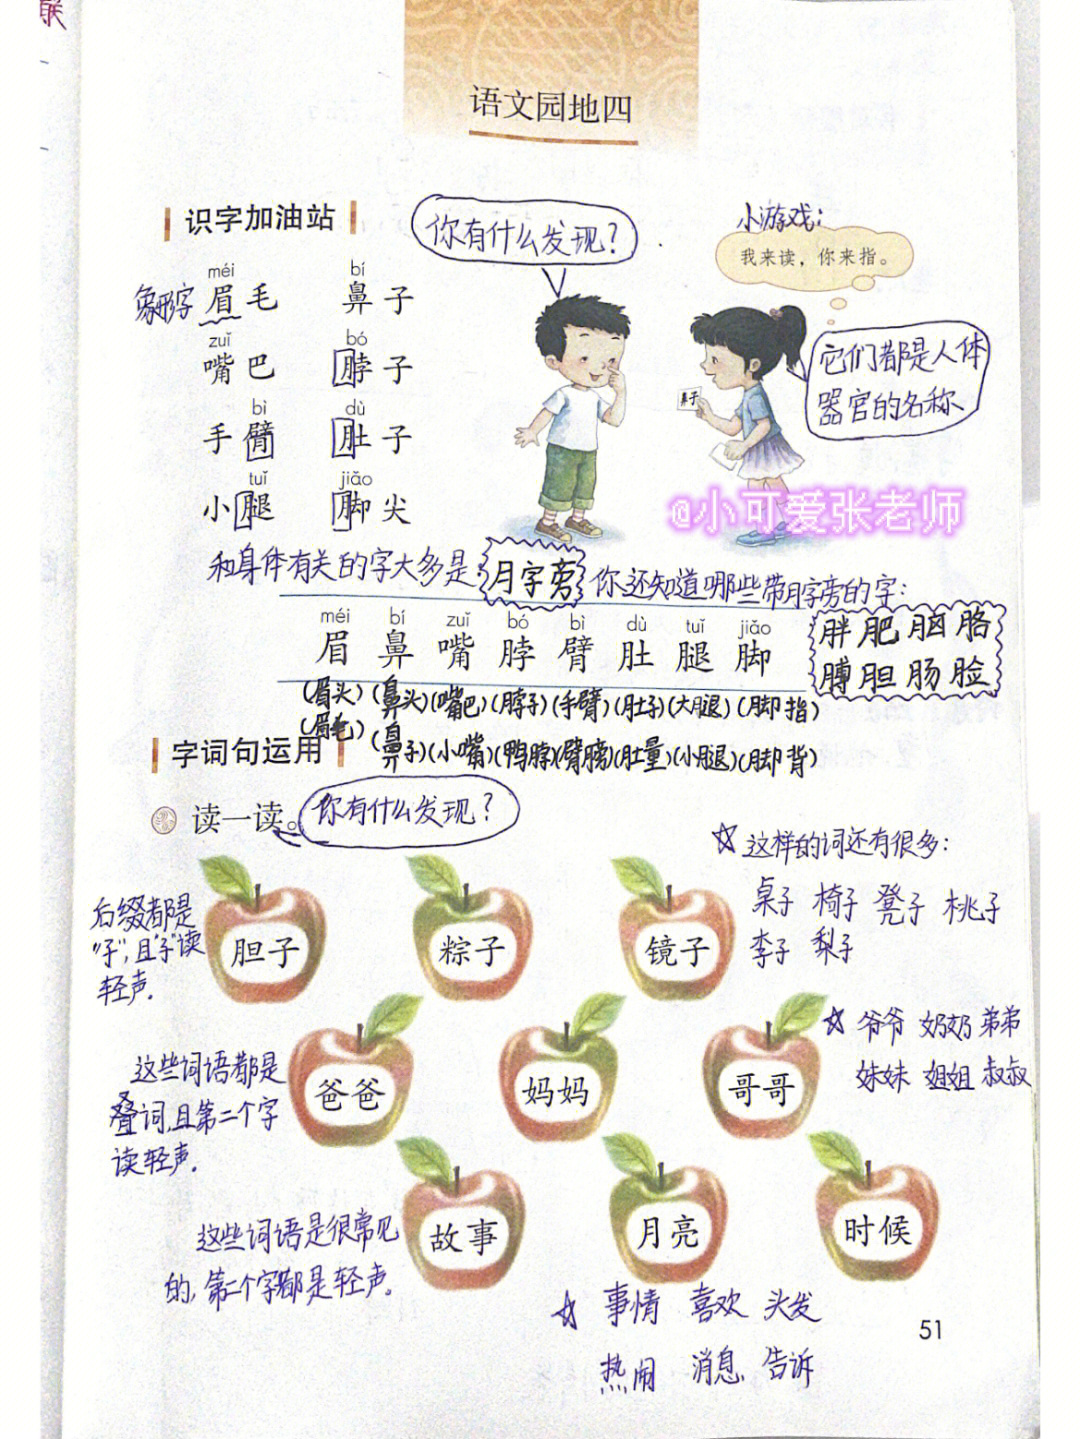 联
语文园地四
识字加油站
你有什么发现？
小游戏：
我来读，你来指。
méi bí
象形字 眉毛 鼻子
zuǐ bó
嘴巴 脖子
bì dù
手臂 肚子
tuǐ jiǎo
小腿 脚尖
鼻子
它们都是人体
器官的名称
@小可爱张老师
和身体有关的字大多是 月字旁 你还知道哪些带月字旁的字：
méi bí zuǐ bó bì dù tuǐ jiǎo
眉 鼻 嘴 脖 臂 肚 腿 脚
胖 肥 脑 胳
膊 胆 肠 脸
(眉头)(鼻头)(嘴巴)(脖子)(手臂)(肚子)(大腿)(脚指)
(眉毛)(鼻子)(小嘴)(鸭脖)(臂膀)(肚量)(小腿)(脚背)
字词句运用
读一读。
你有什么发现？
☆这样的词还有很多：
桌子 椅子 凳子 桃子
李子 梨子
后缀都是
“子”，且“子”读
轻声.
胆子 粽子 镜子
☆ 爷爷 奶奶 弟弟
妹妹 姐姐 叔叔
这些词语都是
叠词,且第二个字
读轻声.
爸爸 妈妈 哥哥
这些词语是很常见
的,第二个字都是轻声。
故事 月亮 时候
☆ 事情 喜欢 头发
热闹 消息 告诉
51